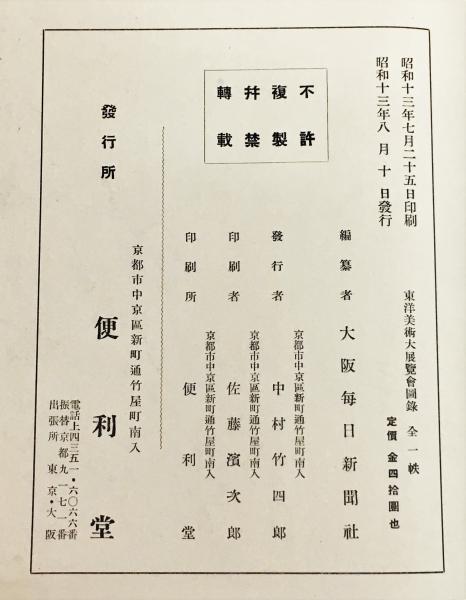 昭和十三年七月二十五日印刷
昭和十三年八月十日發行
東洋美術大展覽會圖錄 全一帙
定價 金四拾圓也
不許
複製
幷禁
轉載
編纂者 大阪每日新聞社
京都市中京區新町通竹屋町南入
發行者 中村竹四郎
京都市中京區新町通竹屋町南入
印刷者 佐藤濱次郎
京都市中京區新町通竹屋町南入
印刷所 便利堂
京都市中京區新町通竹屋町南入
發行所 便利堂
電話上四三五一・六〇六六番
振替京都九一七一番
出張所 東京・大阪